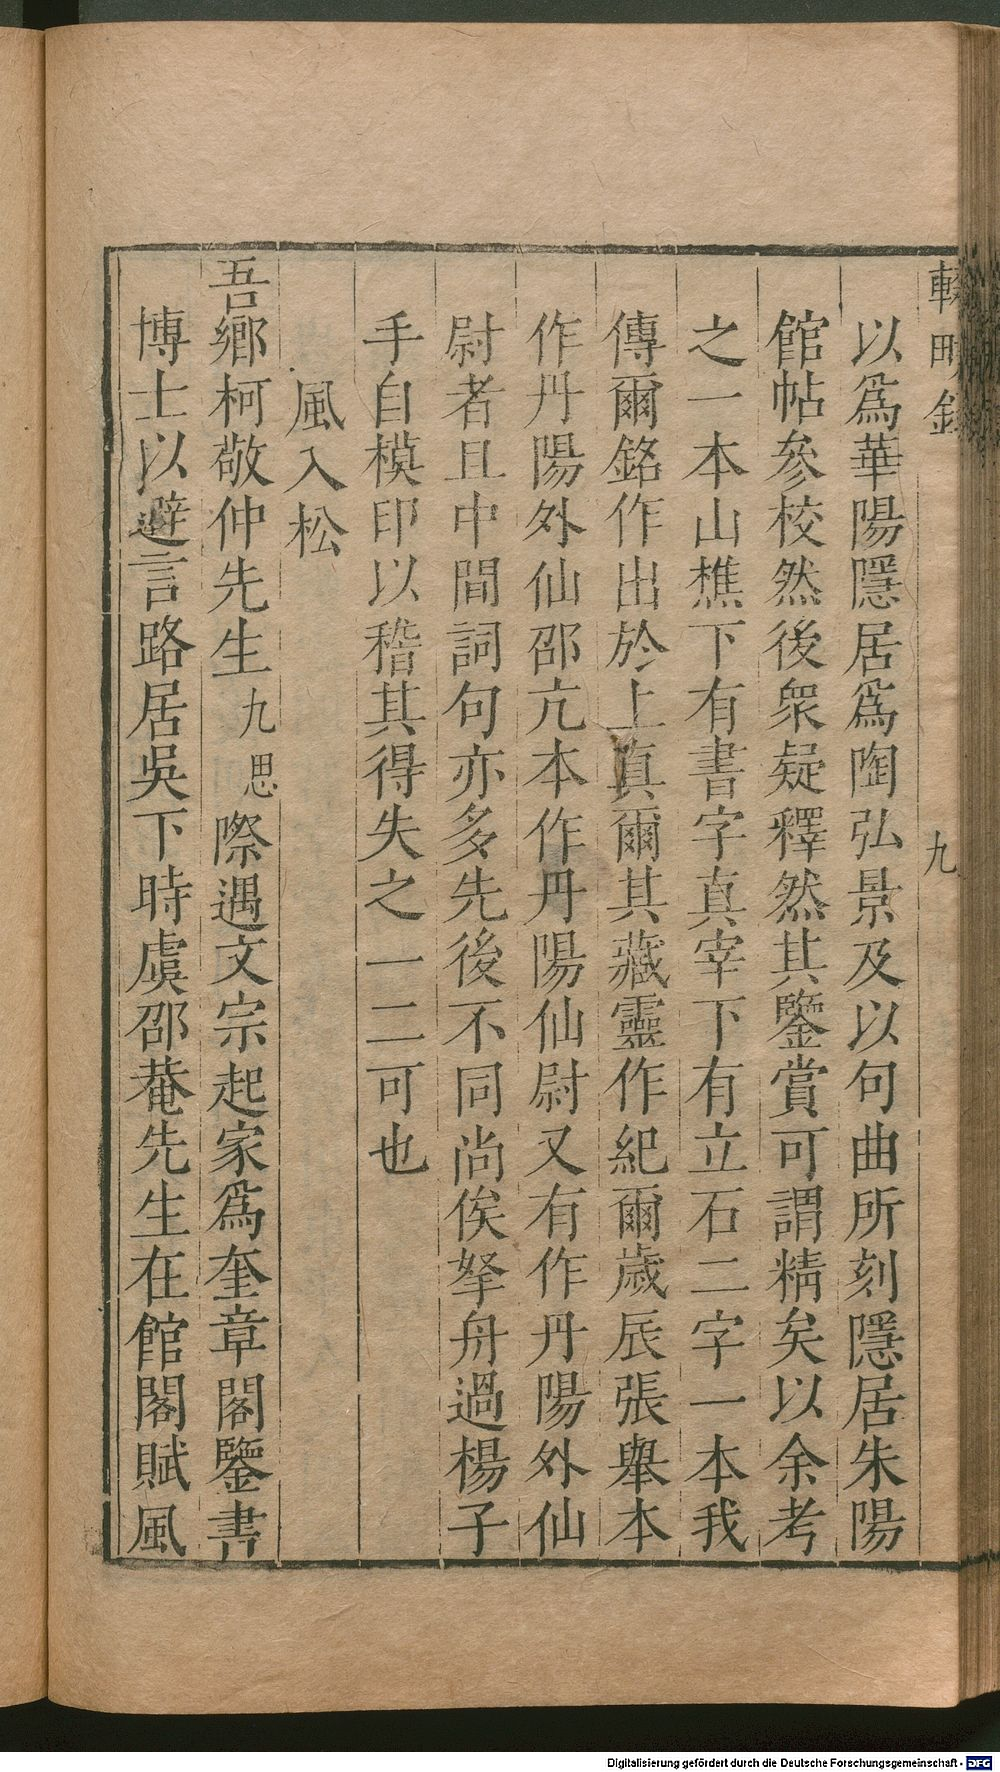 輟畊錄
九
以爲華陽隱居爲陶弘景及以句曲所刻隱居朱陽
館帖參校然後衆疑釋然其鑒賞可謂精矣以余考
之一本山樵下有書字真宰下有立石二字一本我
傳爾銘作出於上真爾其藏靈作紀爾歲辰張舉本
作丹陽外仙邵亢本作丹陽仙尉又有作丹陽外仙
尉者且中間詞句亦多先後不同尚俟拏舟過楊子
手自模印以稽其得失之一二可也
風入松
吾鄉柯敬仲先生九思際遇文宗起家爲奎章閣鑒書
博士以避言路居吳下時虞邵菴先生在館閣賦風
Digitalisierung gefördert durch die Deutsche Forschungsgemeinschaft - DFG